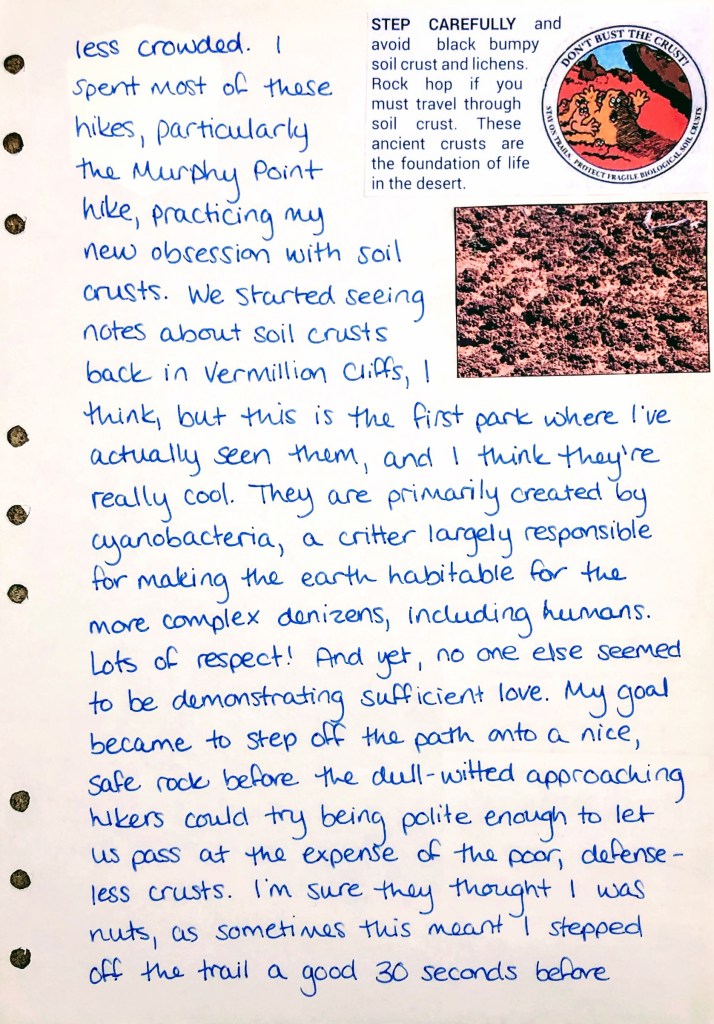 less crowded. I
spent most of these
hikes, particularly
the Murphy Point
hike, practicing my
new obsession with soil
crusts. We started seeing
notes about soil crusts
back in Vermillion Cliffs, I
think, but this is the first park where I've
actually seen them, and I think they're
really cool. They are primarily created by
cyanobacteria, a critter largely responsible
for making the earth habitable for the
more complex denizens, including humans.
Lots of respect! And yet, no one else seemed
to be demonstrating sufficient love. My goal
became to step off the path onto a nice,
safe rock before the dull-witted approaching
hikers could try being polite enough to let
us pass at the expense of the poor, defense-
less crusts. I'm sure they thought I was
nuts, as sometimes this meant I stepped
off the trail a good 30 seconds before
STEP CAREFULLY and
avoid black bumpy
soil crust and lichens.
Rock hop if you
must travel through
soil crust. These
ancient crusts are
the foundation of life
in the desert.
DON'T BUST THE CRUST!
STAY ON TRAILS. PROTECT FRAGILE BIOLOGICAL SOIL CRUSTS